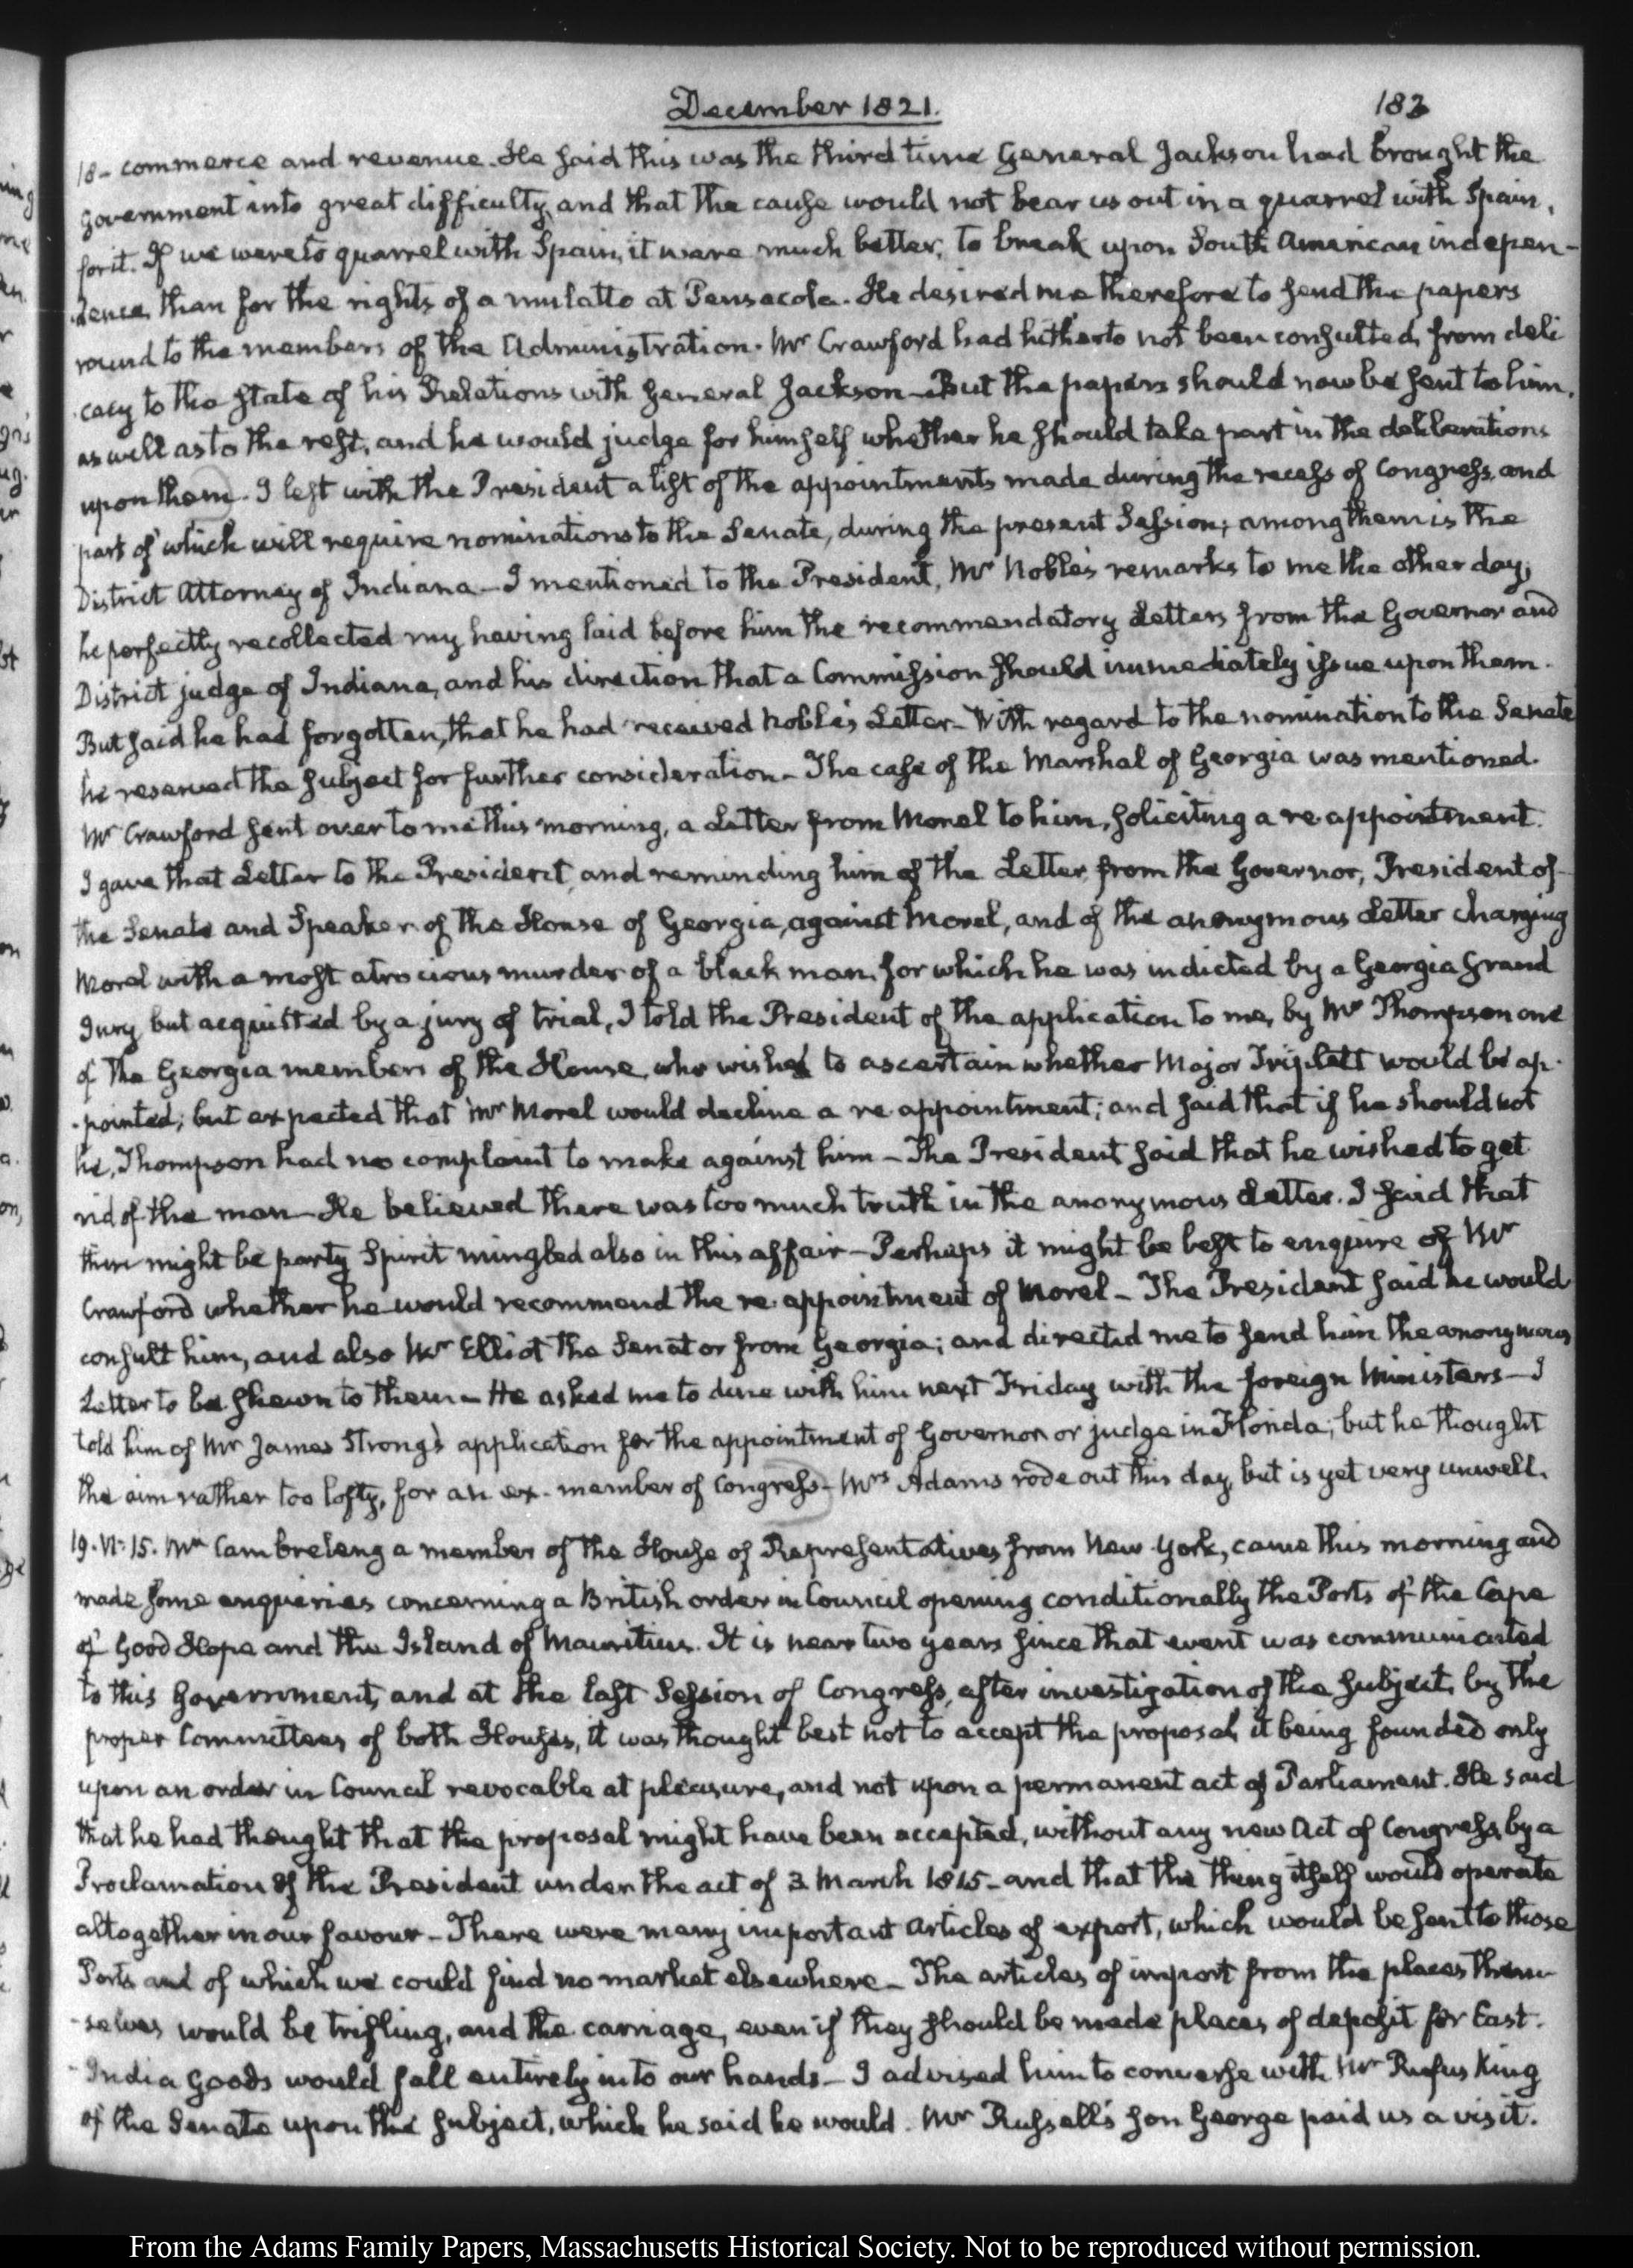 December 1821.
183
18- commerce and revenue. He said this was the third time General Jackson had brought the
government into great difficulty, and that the cause would not bear us out in a quarrel with Spain,
for it. If we were to quarrel with Spain, it were much better, to break upon South American indepen-
dence, than for the rights of a mulatto at Pensacola. He desired me therefore to send the papers
round to the members of the Administration. Mr Crawford had hitherto not been consulted, from deli
-cacy to the state of his Relations with General Jackson - But the papers should now be sent to him,
as well as to the rest, and he would judge for himself whether he should take part in the deliberations
upon them. I left with the President a list of the appointments made during the recess of Congress, and
part of which will require nominations to the Senate, during the present Session; among them is the
District Attorney of Indiana - I mentioned to the President, Mr Noble's remarks to me the other day;
he perfectly recollected my having laid before him the recommendatory Letters from the Governor and
District judge of Indiana, and his direction that a Commission should immediately issue upon them.
But said he had forgotten, that he had received Noble's Letter - With regard to the nomination to the Senate
he reserved the subject for further consideration - The case of the Marshal of Georgia was mentioned.
Mr Crawford sent over to me this morning, a Letter from Morel to him, soliciting a re-appointment.
I gave that Letter to the President, and reminding him of the Letter from the Governor, President of
the Senate and Speaker of the House of Georgia, against Morel, and of the anonymous Letter charging
Morel with a most atrocious murder of a black man, for which he was indicted by a Georgia Grand
Jury, but acquitted by a jury of trial, I told the President of the application to me, by Mr Thompson one
of the Georgia members of the House, who wished to ascertain whether Major Triplett would be ap-
-pointed; but expected that Mr Morel would decline a re-appointment; and said that if he should not
he, Thompson had no complaint to make against him - The President said that he wished to get
rid of the man - He believed there was too much truth in the anonymous Letter. I said that
there might be party Spirit mingled also in this affair - Perhaps it might be best to enquire of Mr
Crawford whether he would recommend the re-appointment of Morel - The President said he would
consult him, and also Mr Elliot the Senator from Georgia; and directed me to send him the anonymous
Letter to be shewn to them - He asked me to dine with him next Friday with the foreign Ministers - I
told him of Mr James Strong's application for the appointment of Governor or judge in Florida; but he thought
the aim rather too lofty, for an ex-member of Congress - Mrs Adams rode out this day, but is yet very unwell.
19. VI: 15. Mr Cambreleng a member of the House of Representatives from New-York, came this morning and
made some enquiries concerning a British order in Council opening conditionally the Ports of the Cape
of Good Hope and the Island of Mauritius. It is near two years since that event was communicated
to this Government, and at the last Session of Congress, after investigation of the subject, by the
proper Committees of both Houses, it was thought best not to accept the proposal, it being founded only
upon an order in Council revocable at pleasure, and not upon a permanent act of Parliament. He said
that he had thought that the proposal might have been accepted, without any new Act of Congress, by a
Proclamation of the President under the act of 3 March 1815 - and that the thing itself would operate
altogether in our favour - There were many important articles of export, which would be sent to those
Ports and of which we could find no market elsewhere - The articles of import from the places them-
-selves would be trifling, and the carriage, even if they should be made places of deposit for East-
-India Goods would fall entirely into our hands - I advised him to converse with Mr Rufus King
of the Senate upon the subject, which he said he would. Mr Russell's son George paid us a visit.
From the Adams Family Papers, Massachusetts Historical Society. Not to be reproduced without permission.